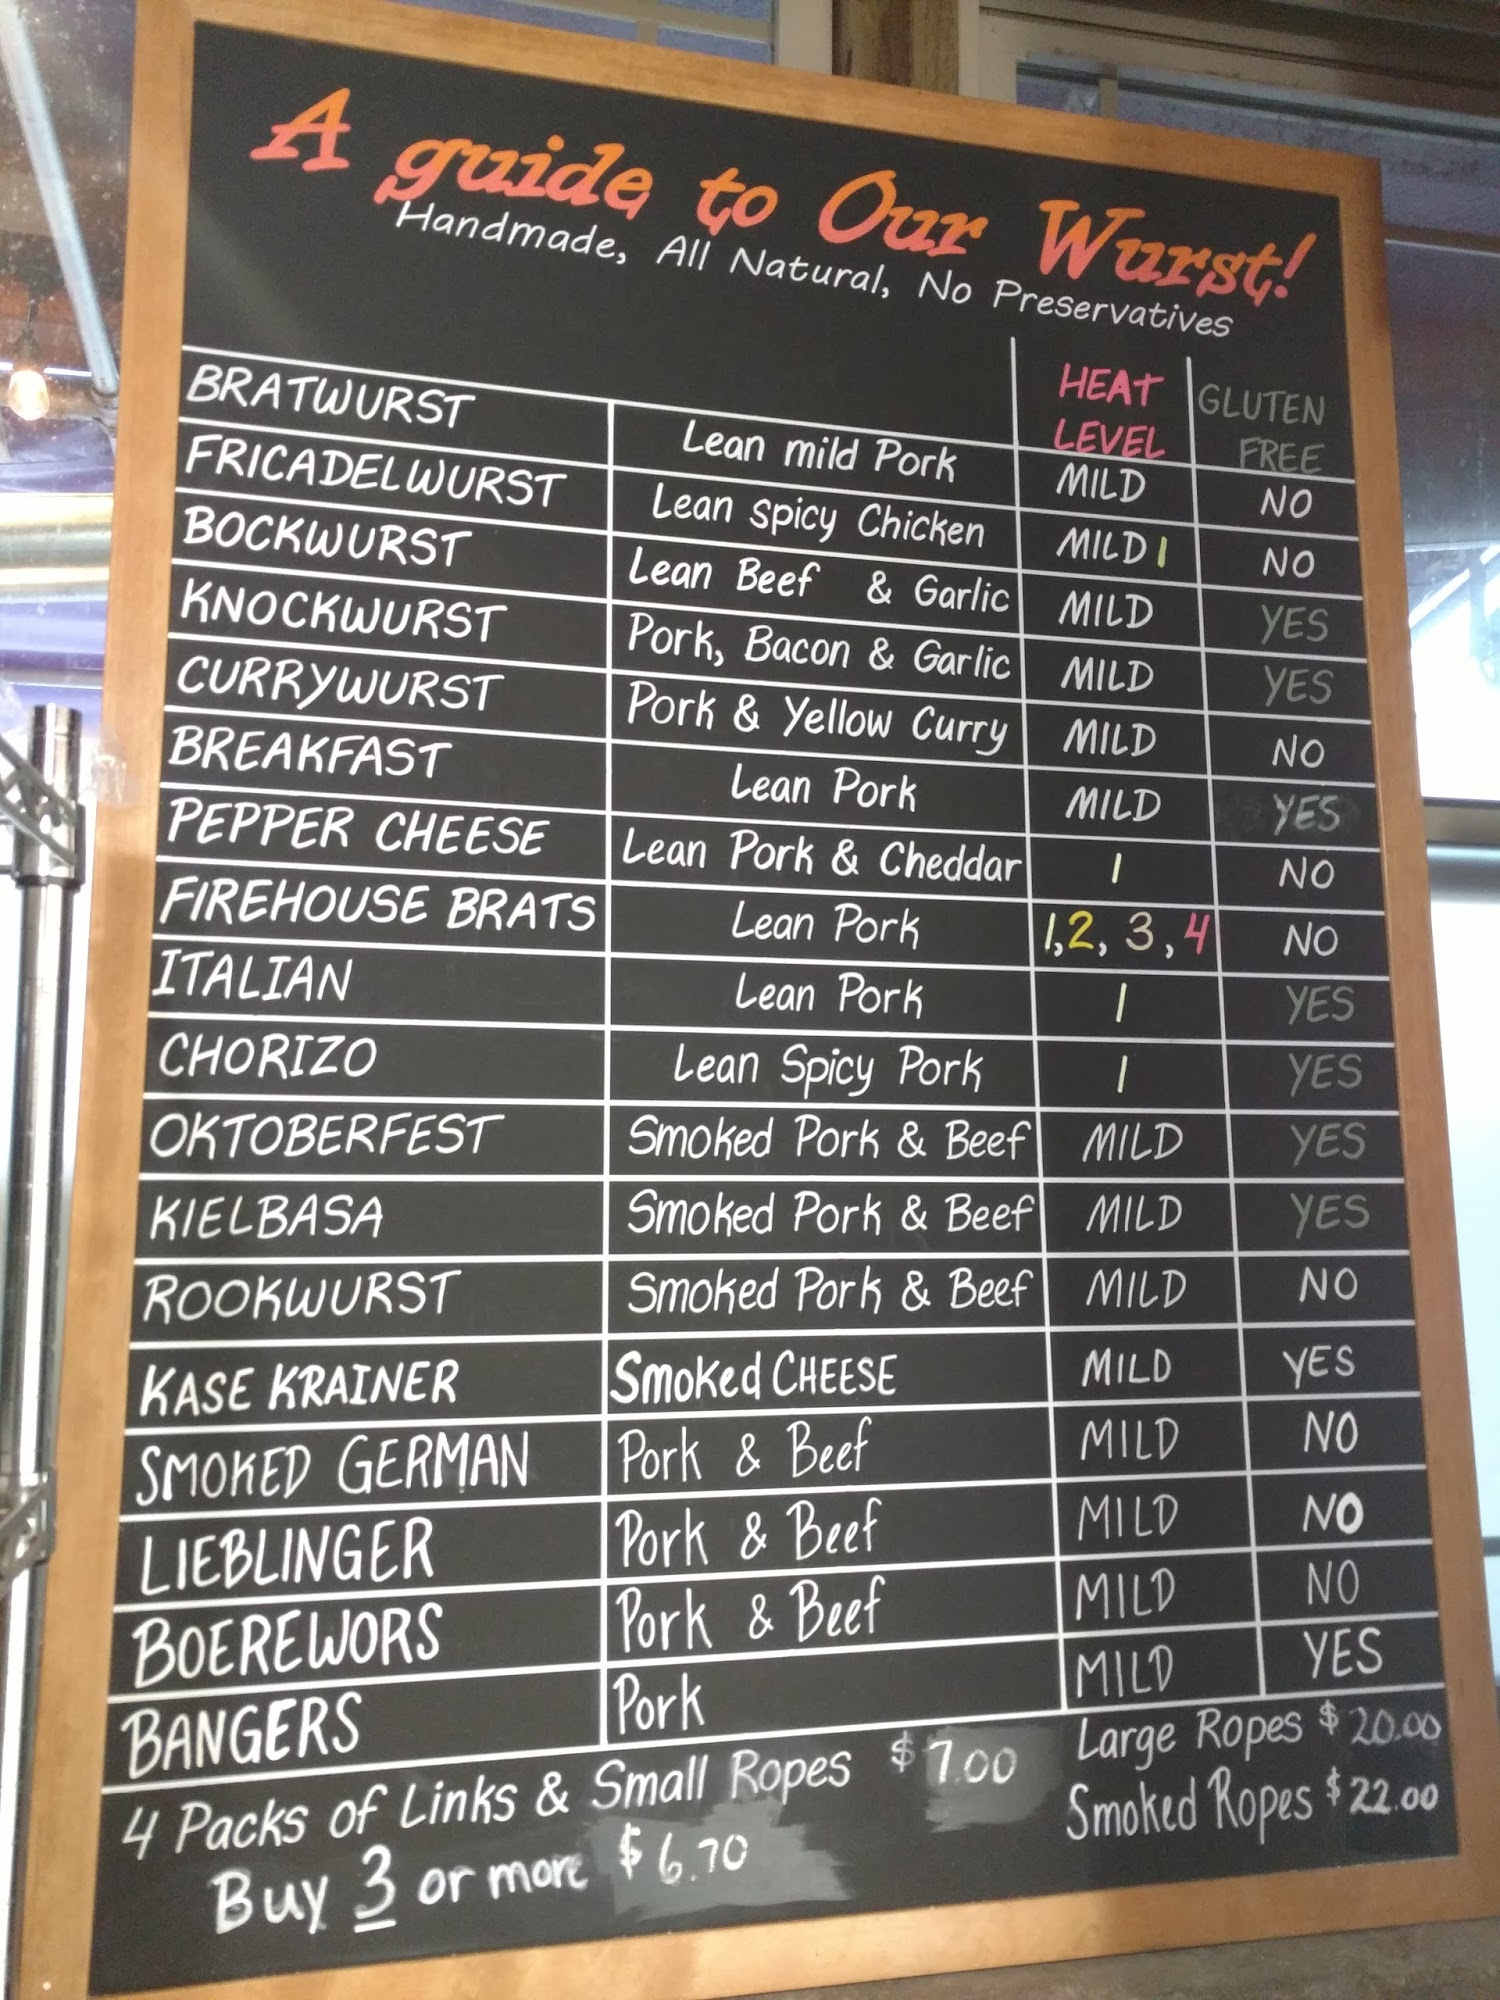 A guide to Our Wurst!
Handmade, All Natural, No Preservatives
HEAT LEVEL GLUTEN FREE
BRATWURST Lean mild Pork MILD NO
FRICADELWURST Lean spicy Chicken MILD 1 NO
BOCKWURST Lean Beef & Garlic MILD YES
KNOCKWURST Pork, Bacon & Garlic MILD YES
CURRYWURST Pork & Yellow Curry MILD NO
BREAKFAST Lean Pork MILD YES
PEPPER CHEESE Lean Pork & Cheddar 1 NO
FIREHOUSE BRATS Lean Pork 1, 2, 3, 4 NO
ITALIAN Lean Pork 1 YES
CHORIZO Lean Spicy Pork 1 YES
OKTOBERFEST Smoked Pork & Beef MILD YES
KIELBASA Smoked Pork & Beef MILD YES
ROOKWURST Smoked Pork & Beef MILD NO
KASE KRAINER Smoked CHEESE MILD YES
SMOKED GERMAN Pork & Beef MILD NO
LIEBLINGER Pork & Beef MILD NO
BOEREWORS Pork & Beef MILD NO
BANGERS Pork MILD YES
4 Packs of Links & Small Ropes $7.00
Buy 3 or more $6.70
Large Ropes $20.00
Smoked Ropes $22.00